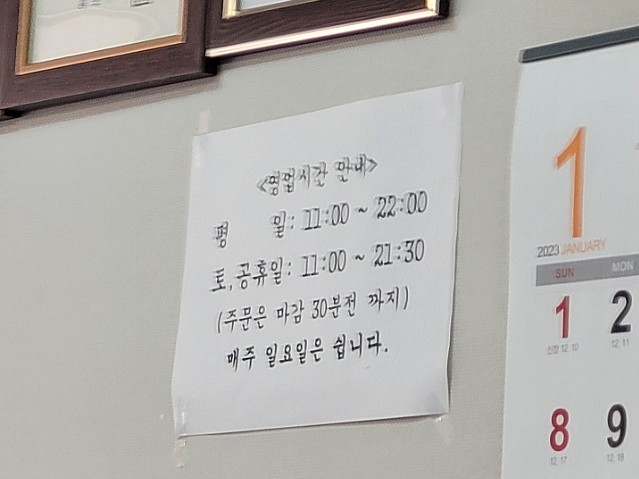 <영업시간 안내>
평 일: 11:00 ~ 22:00
토,공휴일: 11:00 ~ 21:30
(주문은 마감 30분전 까지)
매주 일요일은 쉽니다.
1
2023 JANUARY
SUN MON
1 2
신정 12.10 12.11
8 9
12.17 12.18